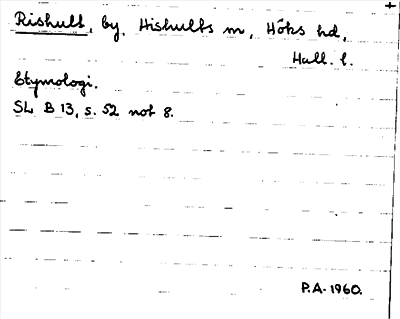 Rishult, by. Hishults sn, Höks hd,
Hall. l.
Etymologi.
SL B 13, s. 52 not 8.
P.A. 1960.